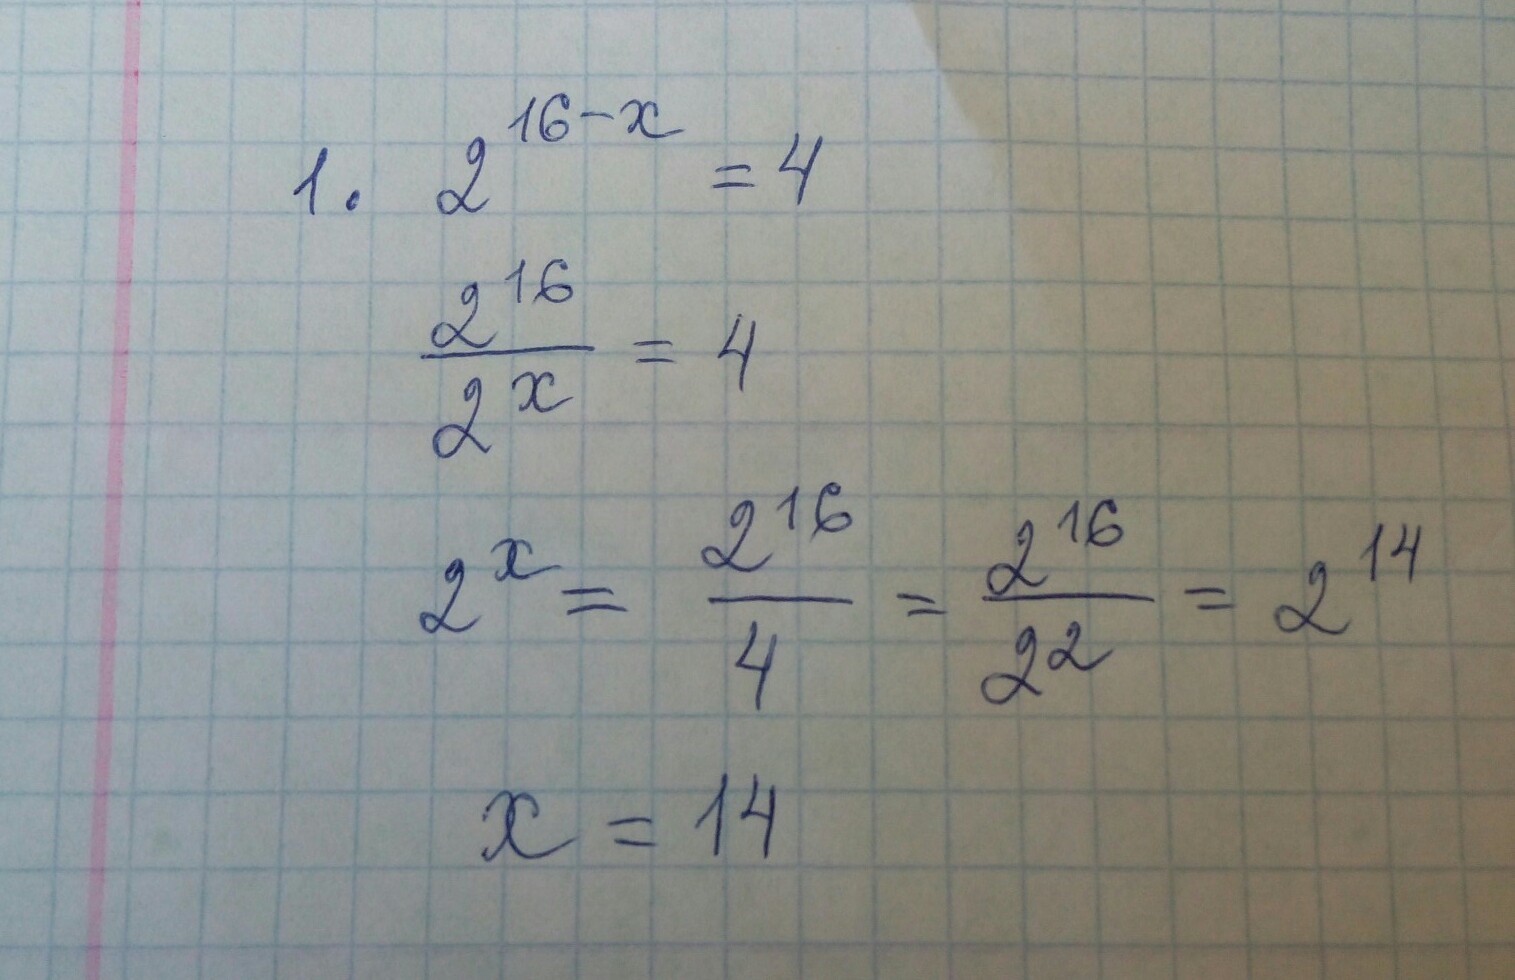 1. 2^{16-x} = 4
\frac{2^{16}}{2^x} = 4
2^x = \frac{2^{16}}{4} = \frac{2^{16}}{2^2} = 2^{14}
x = 14